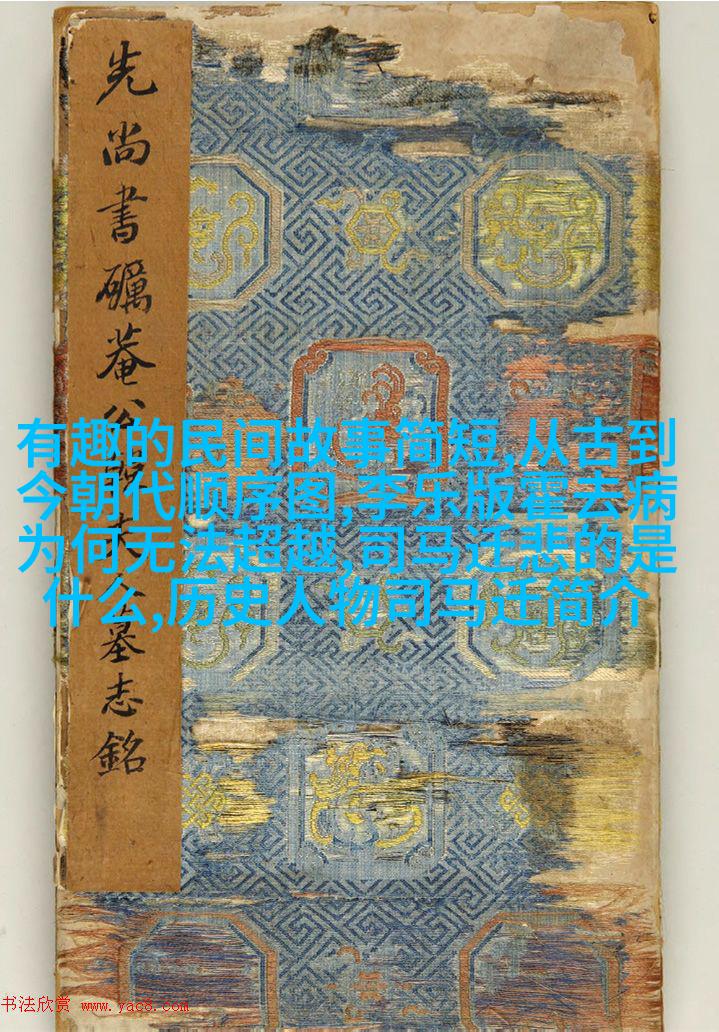 先尚書礪菴公夫人墓志銘
有趣的民间故事简短,从古到
今朝代顺序图,李乐版霍去病
为何无法超越,司马迁悲的是
什么,历史人物司马迁简介
书法欣赏 www.yac8.com